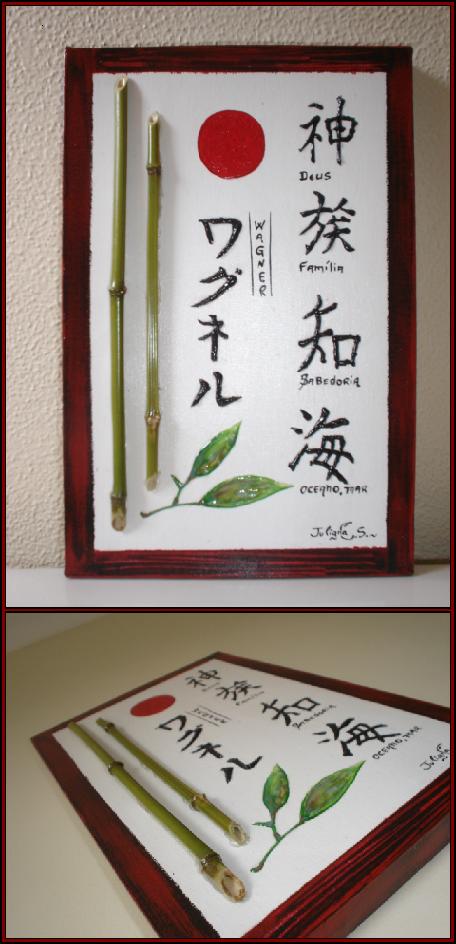 神
Deus
族
Família
知
Sabedoria
海
Oceano, mar
ワグネル
WAGNER
Juliana S.
神
族
知
Sabedoria
海
Oceano, mar
ワグネル